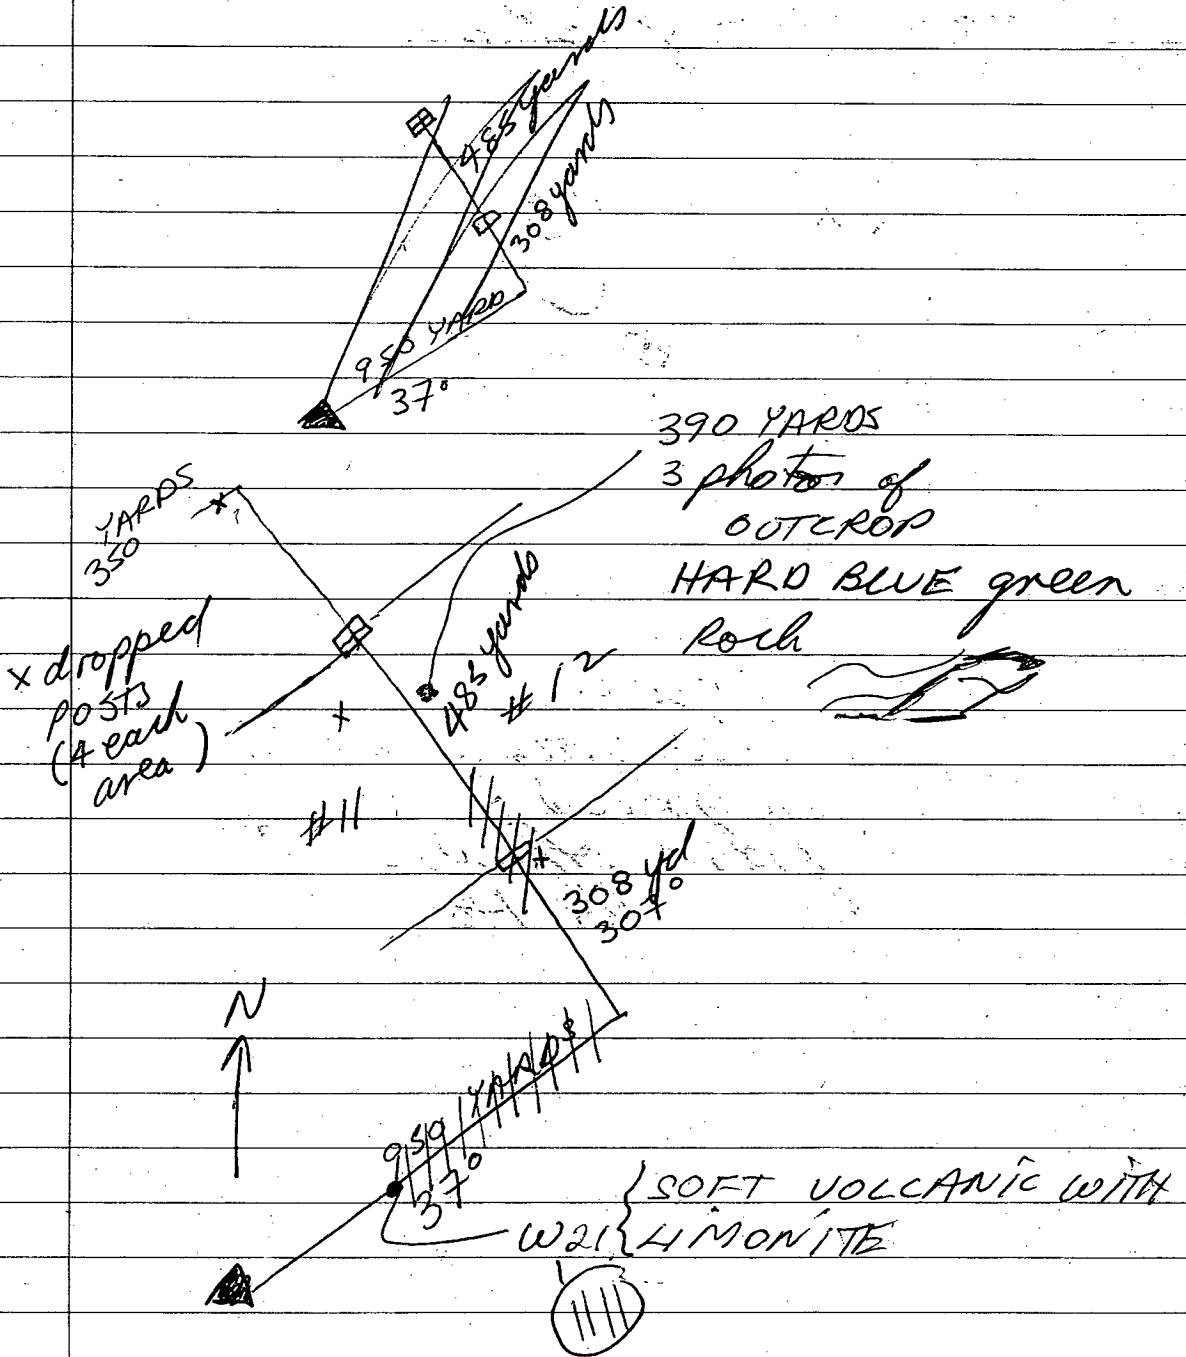 485 yards
308 yards
950 YARD
37°
390 YARDS
3 photos of
OUTCROP
HARD BLUE green
Rock
YARDS
350
x dropped
POSTS
(4 each
area)
485 yards
#12
#11
308 yd
307°
N
959 YARDS
37°
SOFT VOLCANIC WITH
W21 LIMONITE